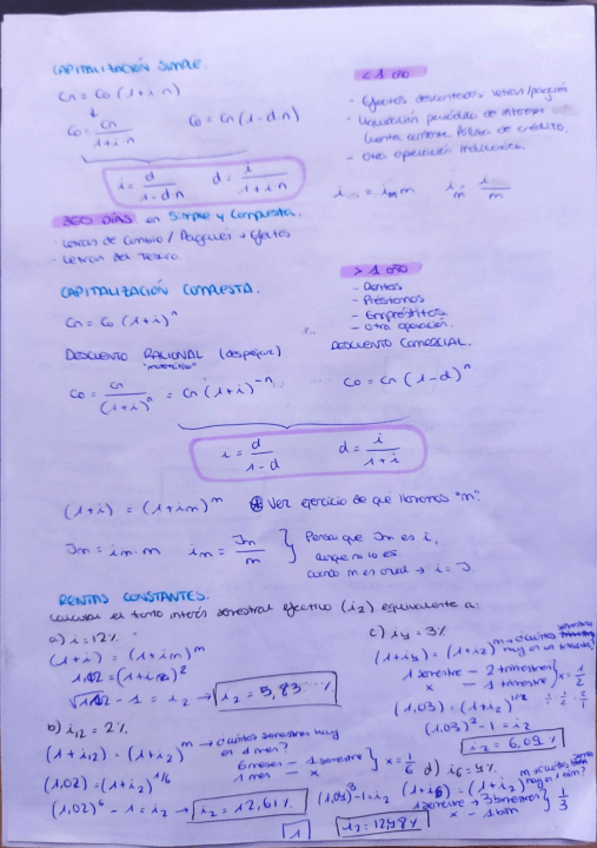 CAPITALIZACIÓN SIMPLE.
Cn = Co (1+i·n)
Co = Cn / 1+i·n
Co = Cn (1-d·n)
i = d / 1-dn
d = i / 1+in
< 1 año
- Efectos descontados: letras/pagarés
- Liquidación periódica de interes:
Cuenta corriente Póliza de crédito.
- Otra operación
i = im m
i m = i / m
360 DÍAS en Simple y Compuesta.
· Letras de Cambio / Pagarés → Efectos
· Letras del Tesoro.
CAPITALIZACIÓN COMPUESTA.
Cn = Co (1+i)^n
> 1 año
- Rentas
- Préstamos
- Empréstitos
- Otra operación.
DESCUENTO RACIONAL (despejar)
"matemático"
Co = Cn / (1+i)^n = Cn (1+i)^-n
DESCUENTO COMERCIAL.
Co = Cn (1-d)^n
i = d / 1-d
d = i / 1+i
(1+i) = (1+im)^m
Ver ejercicio de qué llamamos "m".
Jm = im · m
im = Jm / m
Pensar que Jm es i,
aunque no lo es.
Cuando m es anual → i = J
RENTAS CONSTANTES.
Calcular el tanto interés semestral efectivo (i2) equivalente a:
a) i = 12%
(1+i) = (1+im)^m
1,12 = (1+i2)^2
√1,12 - 1 = i2 → i2 = 5,83%
b) i12 = 2%
(1+i12) = (1+i2)^m → ¿cuántos semestres hay
en 1 mes?
6 meses - 1 semestre
1 mes - x
x = 1/6
(1,02) = (1+i2)^1/6
(1,02)^6 - 1 = i2 → i2 = 12,61%
c) i4 = 3%
(1+i4) = (1+i2)^m → ¿cuántos semestres
hay en un trimestre?
1 semestre - 2 trimestres
x - 1 trimestre
x = 1/2
(1,03) = (1+i2)^1/2
(1,03)^2 - 1 = i2
i2 = 6,09%
d) i6 = 4%
(1+i6) = (1+i2)^m
1 semestre → 3 bimestres
x - 1 bim
1/3
(1,04)^3 - 1 = i2
i2 = 12,48%
1